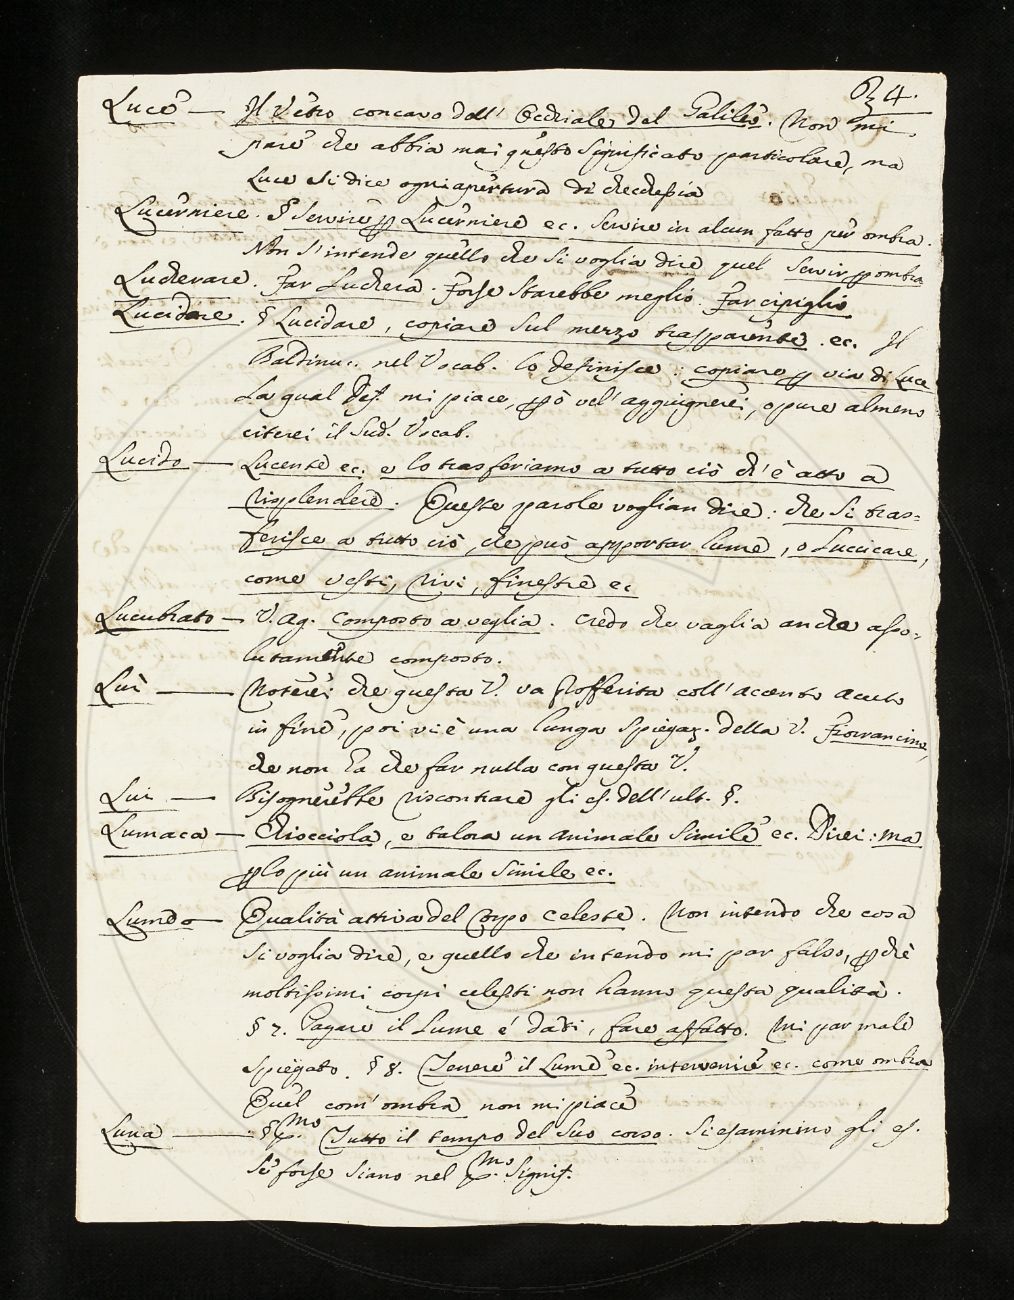 34.
Luce — Il Vetro concavo dell' Occhiale del Galileo. Non mi
pare che abbia mai questo significato particolare, ma
Luce si dice ogni apertura di checchesia
Lucerniere. § Servire p Lucerniere ec. Servire in alcun fatto per ombra.
Non s'intende quello che si voglia dire quel servir p ombra
Lucherare. Far Luchera. Forse starebbe meglio Far cipiglio
Lucidare. § Lucidare, copiare sul mezzo trasparente. ec. Il
Baldinuc. nel Vocab. lo definisce: copiare p via di Luce
La qual Def. mi piace, pò vel' aggiugnerei, o pure almeno
citerei il sud. Vocab.
Lucido — Lucente ec. e lo trasferiamo a tutto ciò ch'è atto a
risplendere. Queste parole voglian dire: che si tras=
ferisce a tutto ciò, che può apportar lume, o Luccicare,
come vesti, rivi, finestre ec
Lucubrato — V. Ag. Composto a veglia. Credo che vaglia anche asso=
lutamente composto.
Luì — Noterei che questa V. va profferita coll'accento acuto
in fine, poi vi è una lunga spiegaz. della V. Fiorrancino,
che non ha che far nulla con questa V.
Lui — Bisognerebbe riscontrare gli es. dell'ult. §.
Lumaca — Chiocciola, e talora un animale simile ec. Direi: ma
plo più un animale simile ec.
Lume — Qualità attiva del Corpo celeste. Non intendo che cosa
si voglia dire, e quello che intendo mi par falso, pchè
moltissimi corpi celesti non hanno questa qualità.
§ 7. Pagare il Lume e' dadi, fare affatto. Mi par male
spiegato. § 8. Tenere il Lume ec. intervenire ec. come ombra
Quel com'ombra non mi piace
Luna — § pmo. Tutto il tempo del suo corso. Si esaminino gli es.
se forse siano nel pmo. signif.